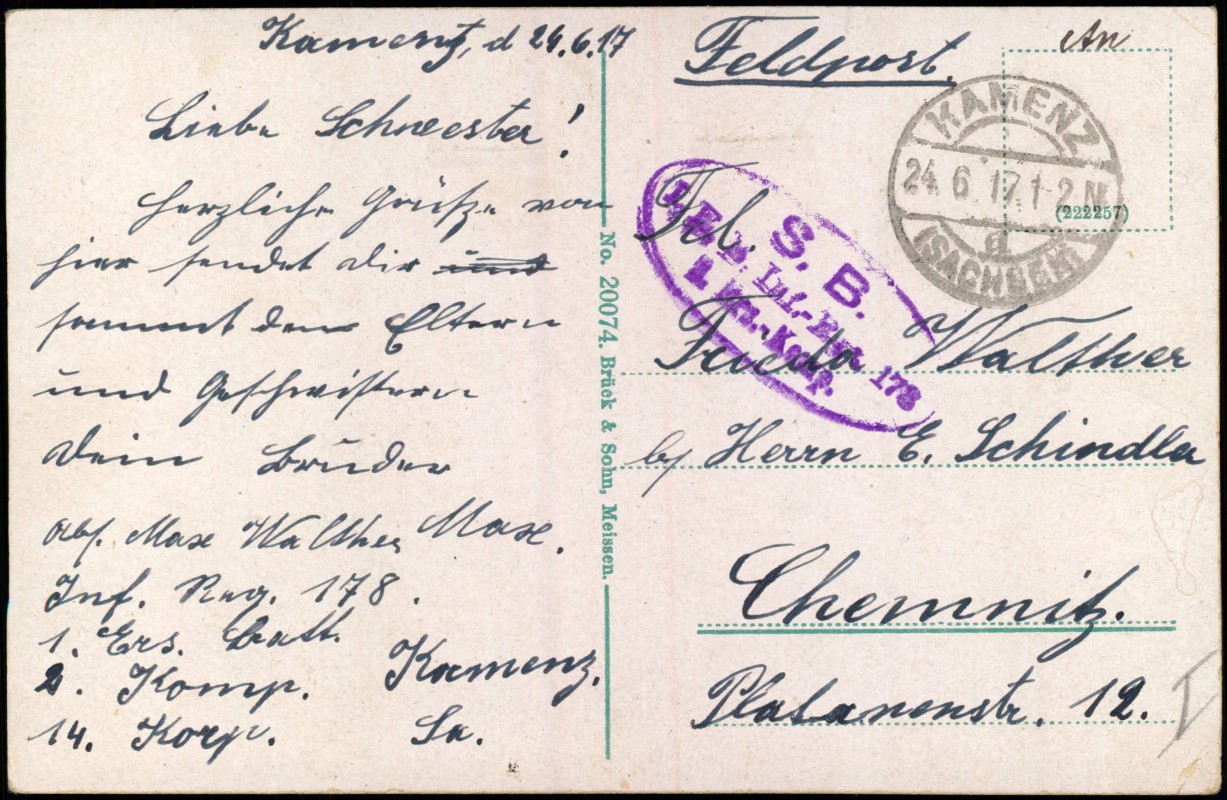 Kamenz, d 24.6.17
Liebe Schwester!
Herzliche Grüße von
hier sendet dir und
sammt den Eltern
und Geschwistern
dein Bruder
Max.
Abs. Max Walther
Inf. Reg. 178.
1. Ers. Batt.
2. Komp.
14. Korp.
Kamenz.
Sa.
No. 20074. Brück & Sohn, Meissen.
Feldpost.
An
KAMENZ
24. 6. 17. 1-2 N
(222257)
a
(SACHSEN)
S. B.
Inf.-Reg. 178
Frl.
Frieda Walther
b/ Herrn E. Schindler
Chemnitz.
Platanenstr. 12.